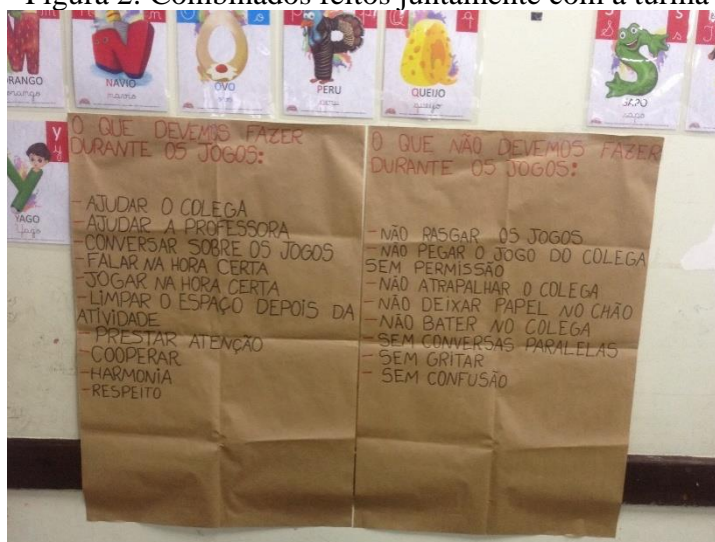 Figura 2: Combinados feitos juntamente com a turma
ORANGO
NAVIO
navio
OVO
ovo
PERU
peru
QUEIJO
queijo
SAPO
sapo
Y
y
YAGO
Yago
O QUE DEVEMOS FAZER
DURANTE OS JOGOS:
- AJUDAR O COLEGA
- AJUDAR A PROFESSORA
- CONVERSAR SOBRE OS JOGOS
- FALAR NA HORA CERTA
- JOGAR NA HORA CERTA
- LIMPAR O ESPAÇO DEPOIS DA
ATIVIDADE
- PRESTAR ATENÇÃO
- COOPERAR
- HARMONIA
- RESPEITO
O QUE NÃO DEVEMOS FAZER
DURANTE OS JOGOS:
- NÃO RASGAR OS JOGOS
- NÃO PEGAR O JOGO DO COLEGA
SEM PERMISSÃO
- NÃO ATRAPALHAR O COLEGA
- NÃO DEIXAR PAPEL NO CHÃO
- NÃO BATER NO COLEGA
- SEM CONVERSAS PARALELAS
- SEM GRITAR
- SEM CONFUSÃO